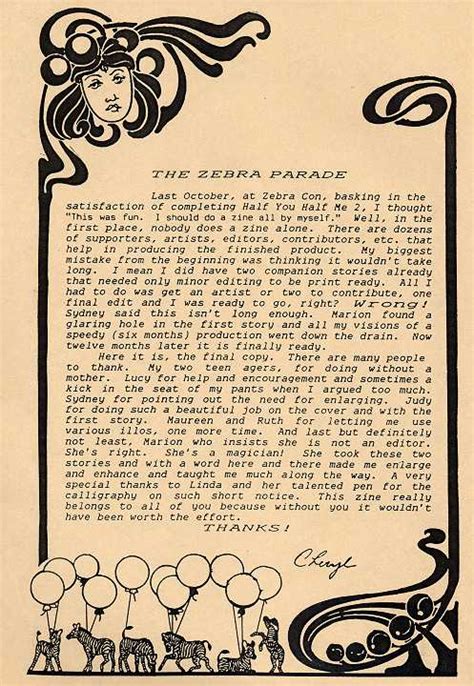 THE ZEBRA PARADE
Last October, at Zebra Con, basking in the
satisfaction of completing Half You Half Me 2, I thought
"This was fun. I should do a zine all by myself." Well, in the
first place, nobody does a zine alone. There are dozens
of supporters, artists, editors, contributors, etc. that
help in producing the finished product. My biggest
mistake from the beginning was thinking it wouldn't take
long. I mean I did have two companion stories already
that needed only minor editing to be print ready. All I
had to do was get an artist or two to contribute, one
final edit and I was ready to go, right? Wrong!
Sydney said this isn't long enough. Marion found a
glaring hole in the first story and all my visions of a
speedy (six months) production went down the drain. Now
twelve months later it is finally ready.
Here it is, the final copy. There are many people
to thank. My two teen agers, for doing without a
mother. Lucy for help and encouragement and sometimes a
kick in the seat of my pants when I argued too much.
Sydney for pointing out the need for enlarging. Judy
for doing such a beautiful job on the cover and with the
first story. Maureen and Ruth for letting me use
various illos, one more time. And last but definitely
not least, Marion who insists she is not an editor.
She's right. She's a magician! She took these two
stories and with a word here and there made me enlarge
and enhance and taught me much along the way. A very
special thanks to Linda and her talented pen for the
calligraphy on such short notice. This zine really
belongs to all of you because without you it wouldn't
have been worth the effort.
THANKS!
Cheryl